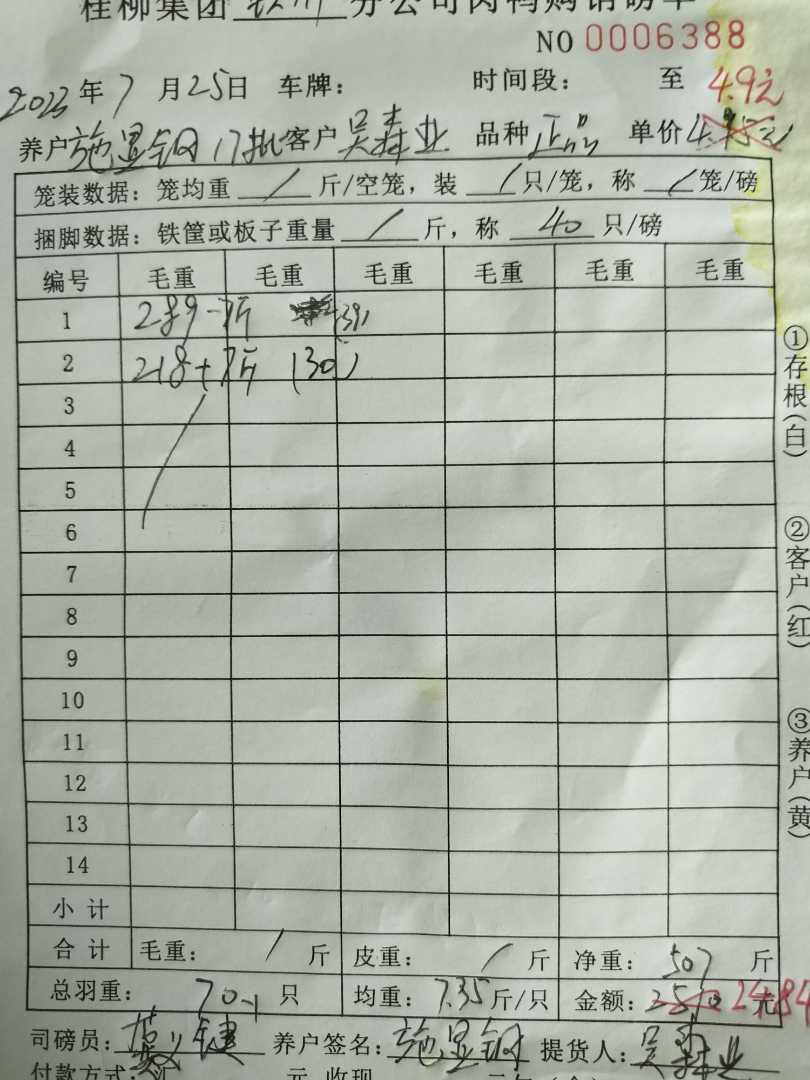 桂柳集团 钦州 分公司肉鸭购销磅单
NO 0006388
2023年7月25日 车牌： 时间段： 至 4.9元
养户施显钢 17批 客户 吴森业 品种 正品 单价
笼装数据：笼均重 / 斤/空笼，装 / 只/笼，称 / 笼/磅
捆脚数据：铁筐或板子重量 / 斤，称 40 只/磅
编号 毛重 毛重 毛重 毛重 毛重 毛重
1 289-斤 (39)
2 218+斤 (30)
3
4
5
6
7
8
9
10
11
12
13
14
小计
合计 毛重： / 斤 皮重： / 斤 净重： 507 斤
总羽重： 70-1 只 均重： 7.35 斤/只 金额： 2510 2484 元
司磅员： 养户签名：施显钢 提货人：吴森业
付款方式： 元 收现
①存根(白)
②客户(红)
③养户(黄)